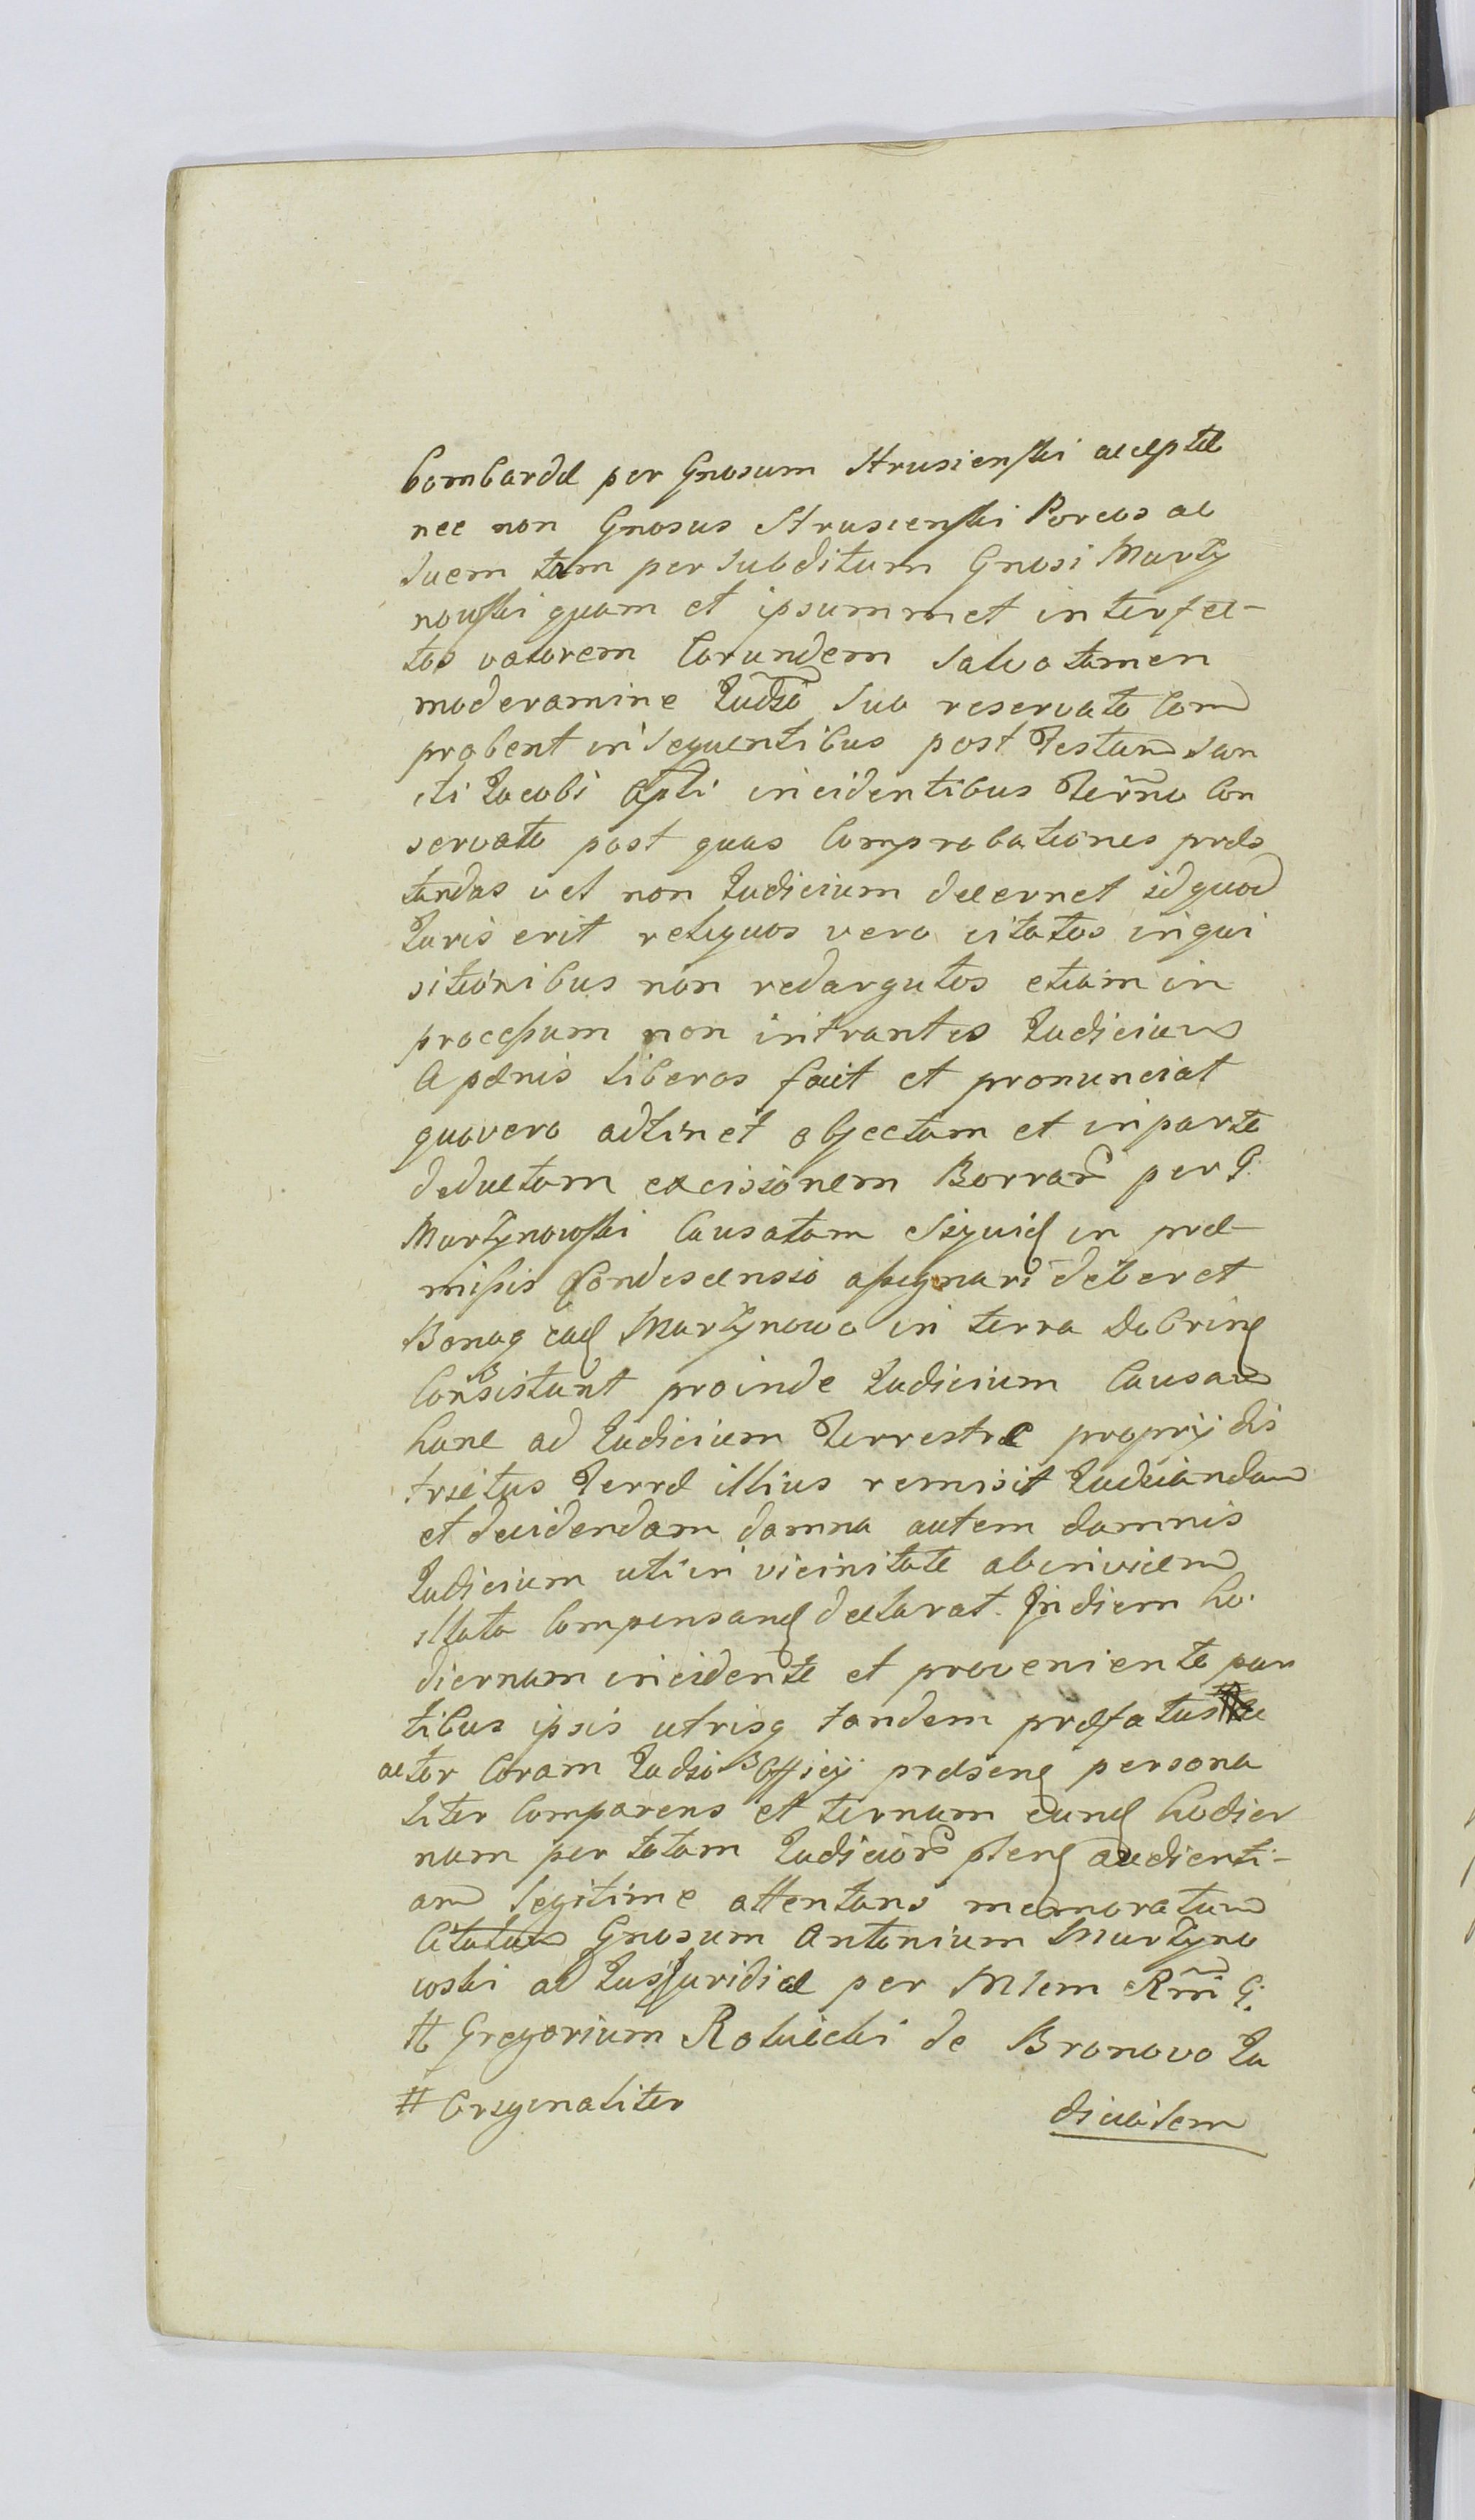 bombardæ per Gnosum Strusienski acceptæ
nec non Gnosus Strusienski Porcos ac
Suem tam per subditum Gnosi Marty
nowski quam et ipsummet interfec-
tos valorem Eorundem Salvo tamen
moderamine Iudio Suo reservato Com
probent in Sequentibus post Festum San
cti Iacobi Apli incidentibus Termo Con
servato post quas Comprobationes præs
tandas vel non Iudicium decernet id quod
Iuris erit reliquos vero citatos inqui
sitionibus non redargutos etiam in
processum non intrantes Iudicium
A pænis liberos facit et pronunciat
quo vero adtinet objectam et in parte
deductam excissionem Borrar per G.
Martynowski Causatam Siquid in præ-
missis Condescensio assignari deberet
Bonaq ead Martynowo in terra Dobrin
Consistunt proinde Iudicium Causam
hanc ad Iudicium Terrestre proprij dis
trictus Terræ illius remisit Iudicandam
et decidendam damna autem damnis
Iudicium uti in vicinitate ab invicem
illata Compensand declarat. In diem ho-
diernam incidente et proveniente par
tibus ipsis utrisq tandem præfatus
actor Coram Iudio Officij præsen persona
liter Comparens et ternum eund hodier
num per totam Iudicior plen audienti-
am legitime attentans memoratum
Citatum Gnosum Antonium Martyno
wski ad Ius Juridice per Mlem Rmi G.
# Gregorium Rolnicki de Bronovo Iu
# Originaliter
dicialem